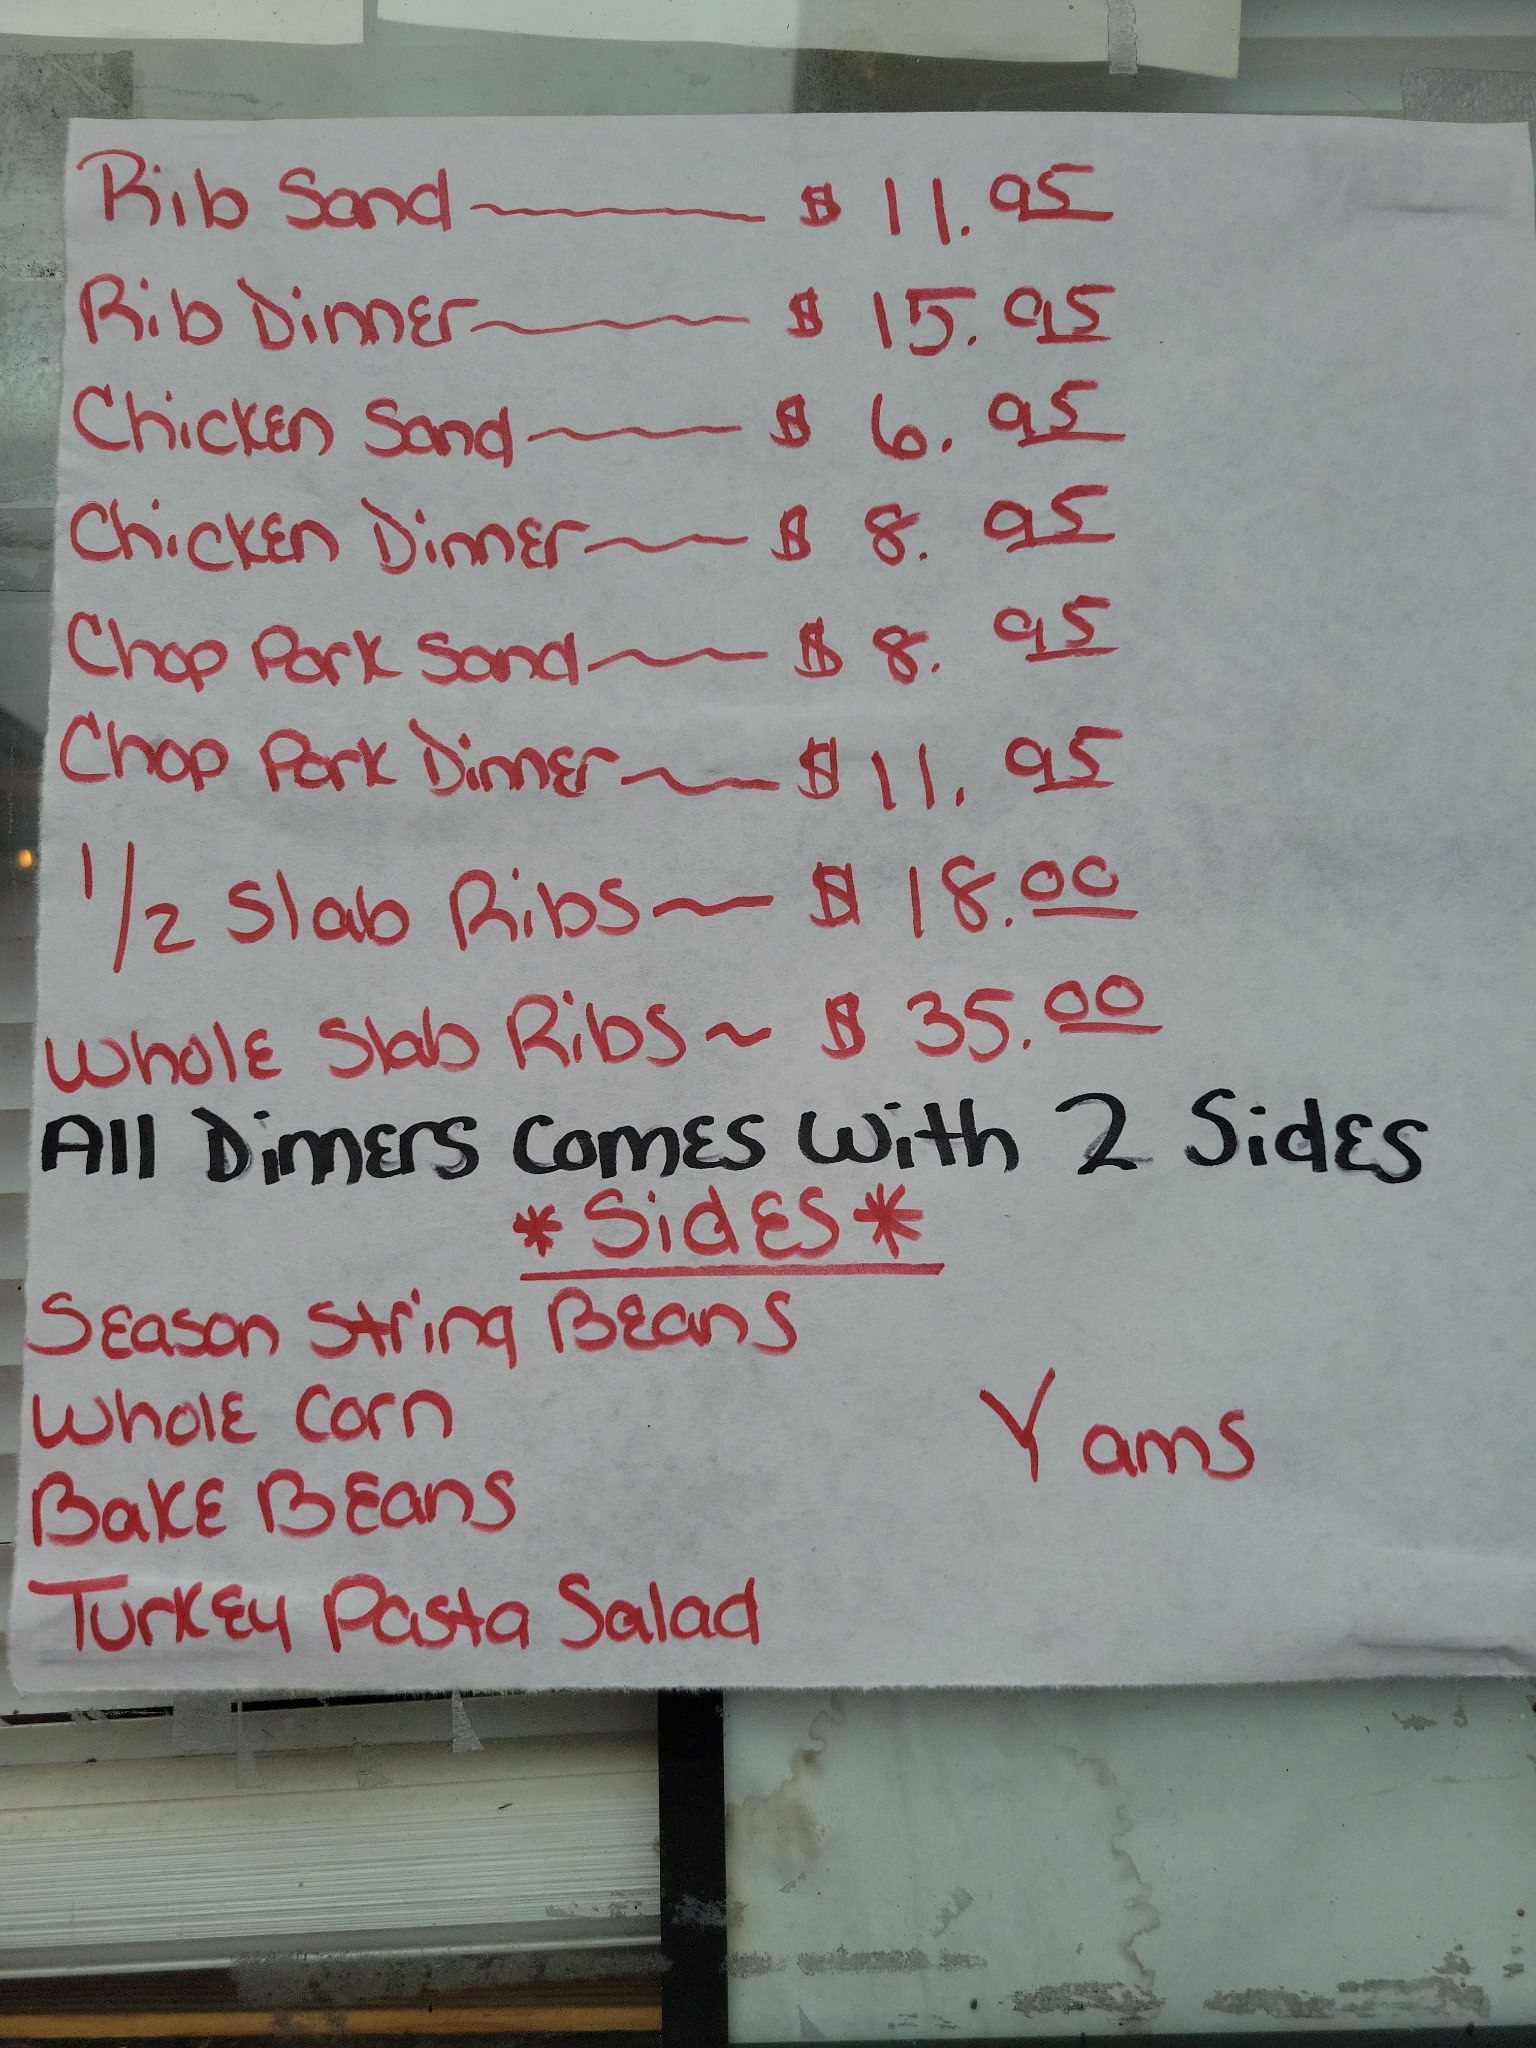 Rib Sand $ 11.95
Rib Dinner $ 15.95
Chicken Sand $ 6.95
Chicken Dinner $ 8.95
Chop Pork Sand $ 8.95
Chop Pork Dinner $ 11.95
1/2 Slab Ribs ~ $ 18.00
Whole Slab Ribs ~ $ 35.00
All Dinners Comes With 2 Sides
* Sides *
Season String Beans
Whole Corn
Yams
Bake Beans
Turkey Pasta Salad